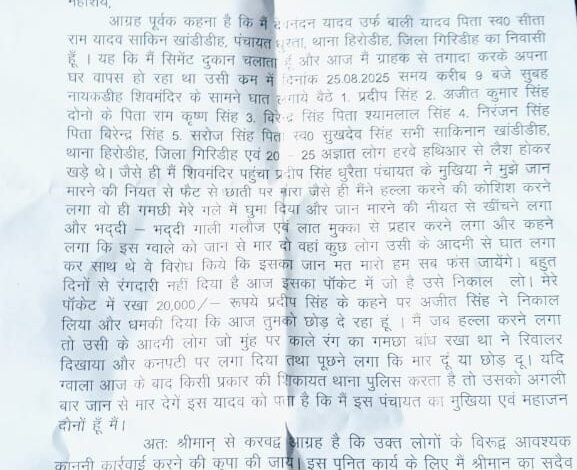 महाशय,
आग्रह पूर्वक कहना है कि मैं दयानंदन यादव उर्फ बाली यादव पिता स्व0 सीता
राम यादव साकिन खांडीडीह, पंचायत धुरेता, थाना हिरोडीह, जिला गिरिडीह का निवासी
हूँ । यह कि मैं सिमेंट दुकान चलाता हूँ और आज मैं ग्राहक से तगादा करके अपना
घर वापस हो रहा था उसी कम में दिनांक 25.08.2025 समय करीब 9 बजे सुबह
नायकडीह शिवमंदिर के सामने घात लगाये बैठे 1. प्रदीप सिंह 2. अजीत कुमार सिंह
दोनों के पिता राम कृष्ण सिंह 3. विरेन्द्र सिंह पिता श्यामलाल सिंह 4. निरंजन सिंह
पिता बिरेन्द्र सिंह 5. सरोज सिंह पिता स्व0 सुखदेव सिंह सभी साकिनान खांडीडीह,
थाना हिरोडीह, जिला गिरिडीह एवं 20 – 25 अज्ञात लोग हरवे हथिआर से लैश होकर
खड़े थे। जैसे ही मैं शिवमंदिर पहुंचा प्रदीप सिंह धुरैता पंचायत के मुखिया ने मुझे जान
मारने की नियत से फैट से छाती पर मारा जैसे ही मैंने हल्ला करने की कोशिश करने
लगा वो ही गमछी मेरे गले में घुमा दिया और जान मारने की नीयत से खींचने लगा
और भद्दी – भद्दी गाली गलौज एवं लात मुक्का से प्रहार करने लगा और कहने
लगा कि इस ग्वाले को जान से मार दो वहां कुछ लोग उसी के आदमी से घात लगा
कर साथ थे वे विरोध किये कि इसका जान मत मारो हम सब फंस जायेंगे। बहुत
दिनों से रंगदारी नहीं दिया है आज इसका पॉकेट में जो है उसे निकाल लो। मेरे
पॉकेट में रखा 20,000/– रूपये प्रदीप सिंह के कहने पर अजीत सिंह ने निकाल
लिया और धमकी दिया कि आज तुमको छोड़ दे रहा हूं । मैं जब हल्ला करने लगा
तो उसी के आदमी लोग जो मुंह पर काले रंग का गमछा बांध रखा था ने रिवालर
दिखाया और कनपटी पर लगा दिया तथा पूछने लगा कि मार दूं या छोड़ दू। यदि
ग्वाला आज के बाद किसी प्रकार की शिकायत थाना पुलिस करता है तो उसको अगली
बार जान से मार देगें इस यादव को पता है कि मैं इस पंचायत का मुखिया एवं महाजन
दोनों हूँ मैं।
अतः श्रीमान् से करवद्व आग्रह है कि उक्त लोगों के विरूद्व आवश्यक
कानूनी कार्रवाई करने की कृपा की जाय। इस पुनित कार्य के लिए मैं श्रीमान का सदैव